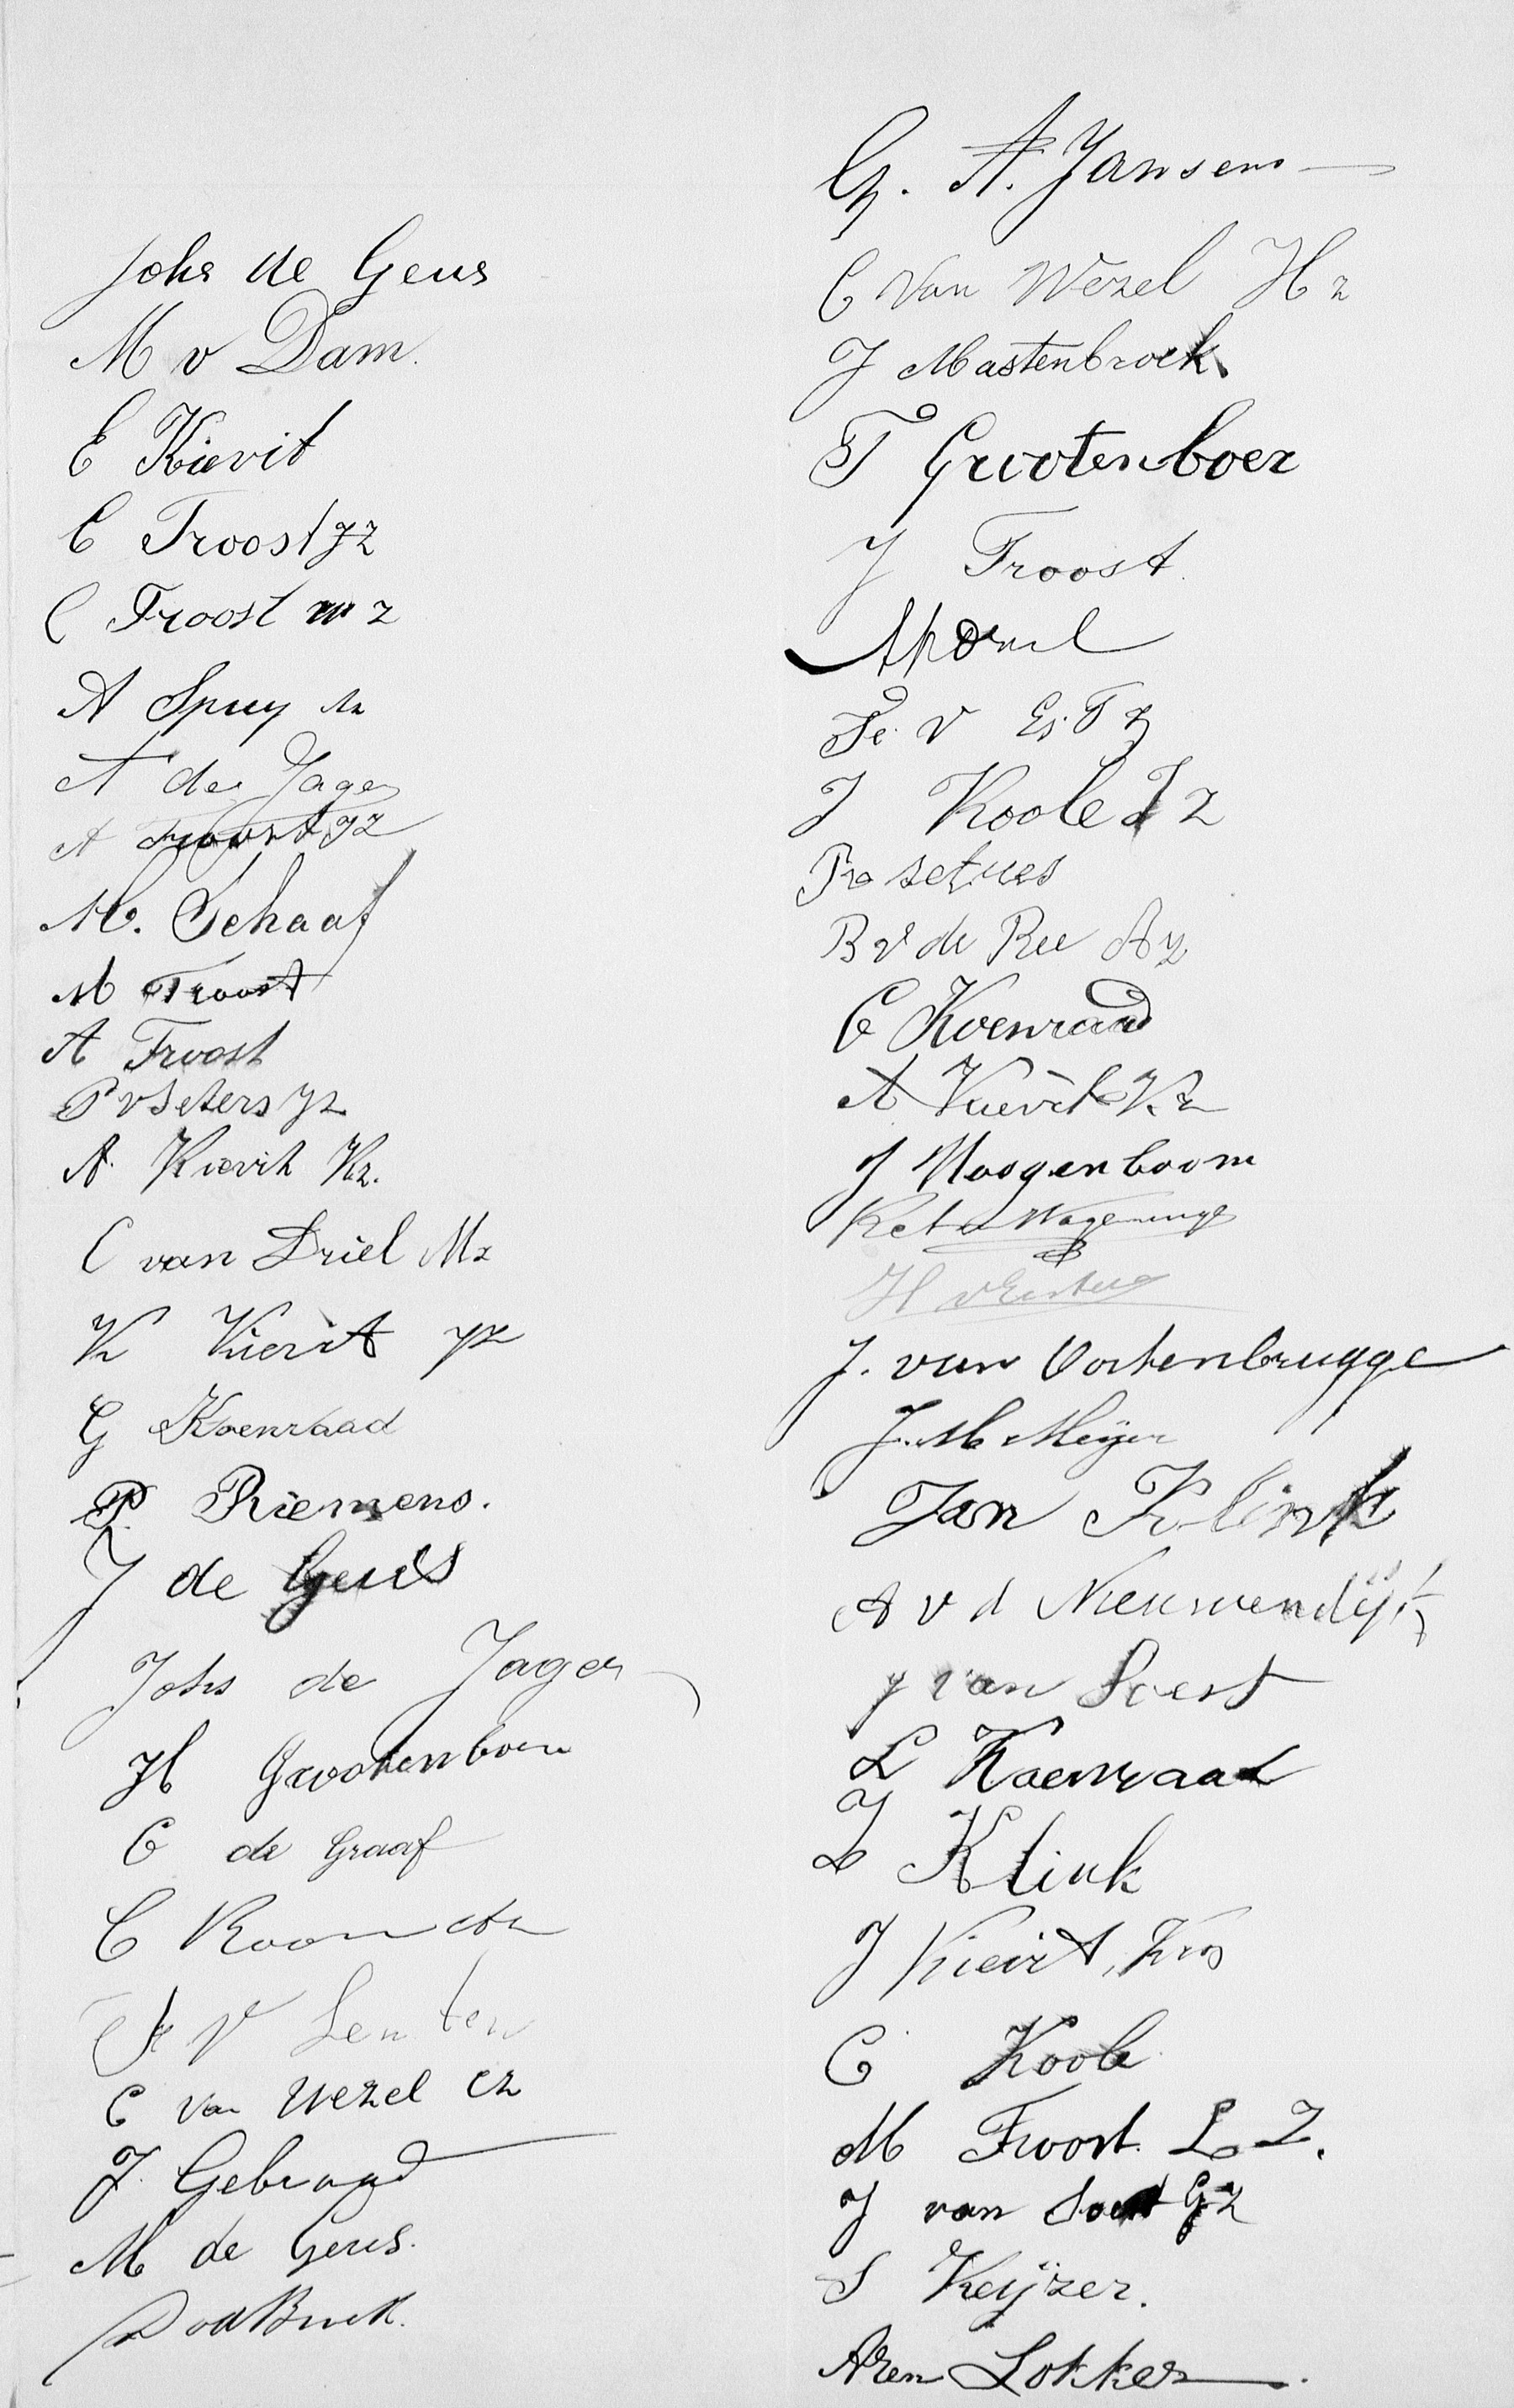 Johs de Geus
M v Dam.
E Kievit
C Troost JZ
C Troost m z
A Spuy
A de Jager
A Troost JZ
M. Schaaf
M Troost
A Troost
P v Seters Jz
A. Kievit Kz.
C van Driel Mz
K Kievit Jz
G Koenraad
P. Riemens.
J de Geus
Johs de Jager
H Grootenboer
C de Graaf
C Koom
V Senten
C van Wezel Cz
J. Gebraad
M de Geus.
G. A. Jansen
C Van Wezel Hz
J Mastenbroek
T Grootenboer
J Troost.
J Koole J Z
B v de Ree Az
C Koenraad
A Kievit Kz
J Hoogenboom
Wageninge
J. van Oostenbrugge
J. M. Meijer
Jan Klink
A v d Nieuwendijk
J van Soest
L Koenraad
J Klink
J Kievit,
C Koole
M Troost. L Z.
J van Soest GZ
S Keijzer.
Aren Lokker